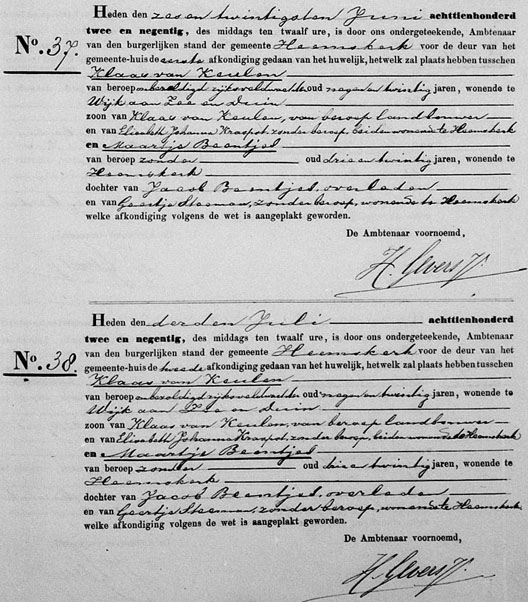 Heden den zes en twintigsten Juni achttienhonderd
twee en negentig, des middags ten twaalf ure, is door ons ondergeteekende, Ambtenaar
No. 37. van den burgerlijken stand der gemeente Heemskerk voor de deur van het
gemeente-huis de eerste afkondiging gedaan van het huwelijk, hetwelk zal plaats hebben tusschen
Klaas van Keulen
van beroep onbezoldigd rijksveldwachter oud negen en twintig jaren, wonende te
Wijk aan Zee en Duin
zoon van Klaas van Keulen, van beroep landbouwer
en van Elisabeth Johanna Kraspot, zonder beroep, beiden wonende te Heemskerk
en Maartje Beentjes
van beroep zonder oud drie en twintig jaren, wonende te
Heemskerk
dochter van Jacob Beentjes, overleden
en van Geertje Steeman, zonder beroep, wonende te Heemskerk
welke afkondiging volgens de wet is aangeplakt geworden.
De Ambtenaar voornoemd,
H. Gevers
Heden den derden Juli achttienhonderd
twee en negentig, des middags ten twaalf ure, is door ons ondergeteekende, Ambtenaar
van den burgerlijken stand der gemeente Heemskerk voor de deur van het
No. 38 gemeente-huis de tweede afkondiging gedaan van het huwelijk, hetwelk zal plaats hebben tusschen
Klaas van Keulen
van beroep onbezoldigd rijksveldwachter oud negen en twintig jaren, wonende te
Wijk aan Zee en Duin
zoon van Klaas van Keulen, van beroep landbouwer
en van Elisabeth Johanna Kraspot, zonder beroep, beiden wonende te Heemskerk
en Maartje Beentjes
van beroep zonder oud drie en twintig jaren, wonende te
Heemskerk
dochter van Jacob Beentjes, overleden
en van Geertje Steeman, zonder beroep, wonende te Heemskerk
welke afkondiging volgens de wet is aangeplakt geworden.
De Ambtenaar voornoemd,
H. Gevers